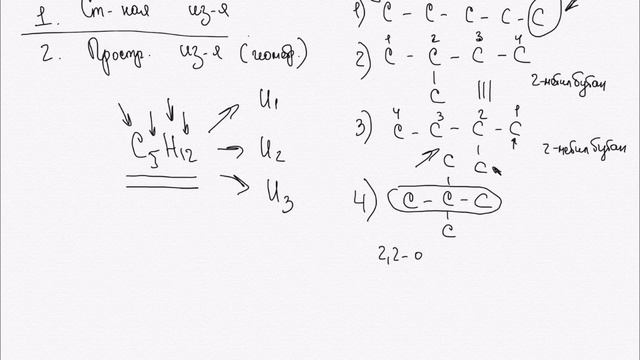 1. Ст-ная из-я
2. Простр. из-я (геомер.)
C5H12
И1
И2
И3
1) C - C - C - C - C
1 2 3 4
2) C - C - C - C
C
2-метилбутан
4 3 2 1
3) C - C - C - C
C
2-метилбутан
C
4) C - C - C
C
2,2-